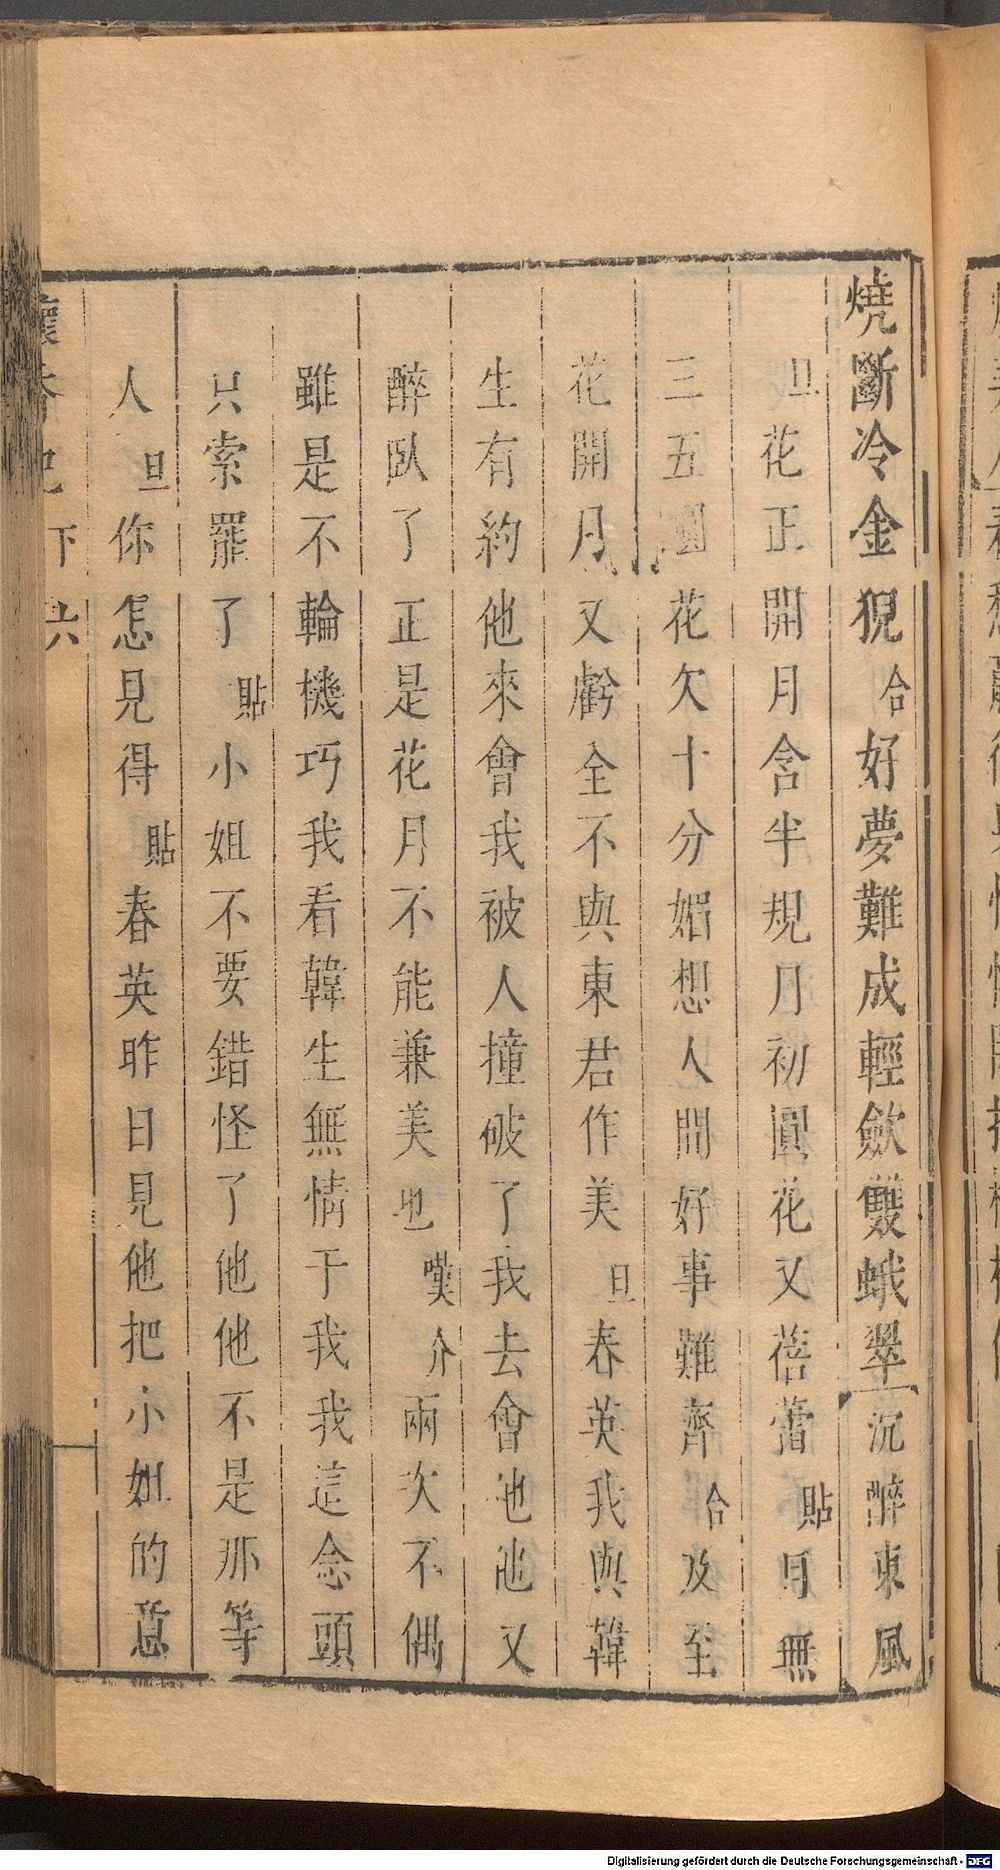 燒斷冷金猊合好夢難成輕斂雙蛾翠沉醉東風
旦花正開月含半規月初圓花又蓓蕾貼月無
三五圓花欠十分媚想人間好事難齊合及至
花開月又虧全不與東君作美旦春英我與韓
生有約他來會我被人撞破了我去會他他又
醉臥了正是花月不能兼美也嘆介兩次不偶
雖是不輪機巧我看韓生無情于我我這念頭
只索罷了貼小姐不要錯怪了他他不是那等
人旦你怎見得貼春英昨日見他把小姐的意
下 六
Digitalisierung gefördert durch die Deutsche Forschungsgemeinschaft - DFG